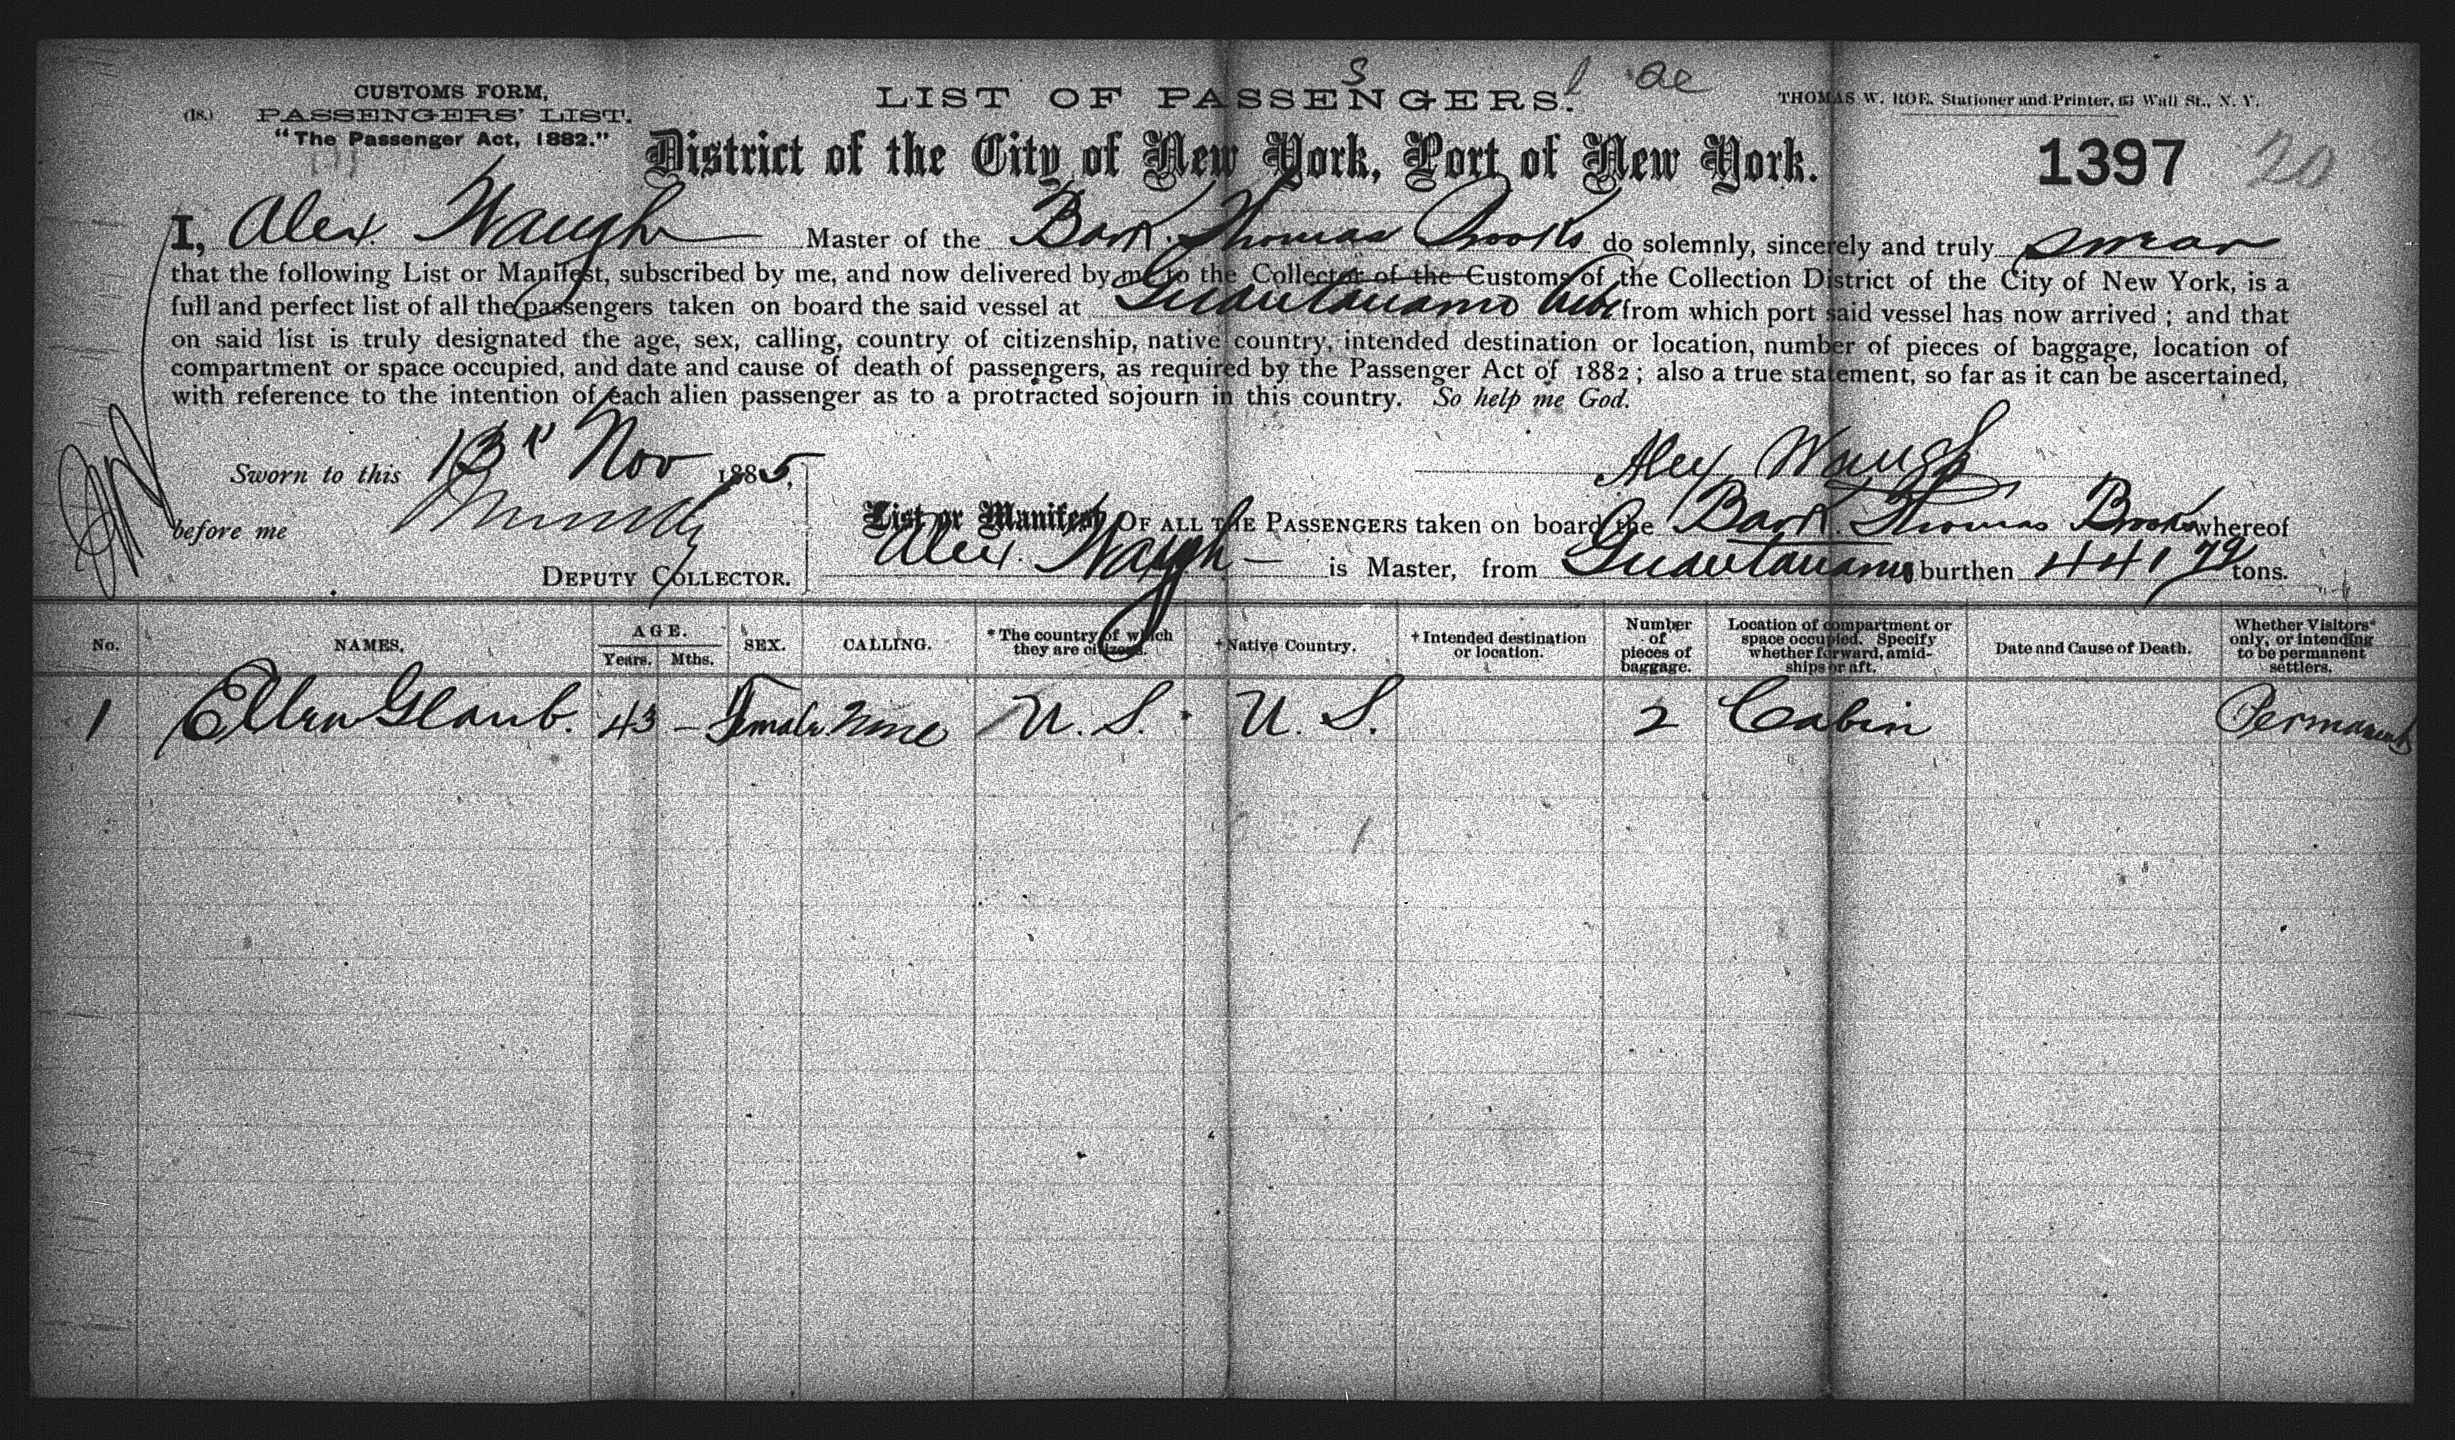 S l ac
CUSTOMS FORM,
(18.) PASSENGERS' LIST.
"The Passenger Act, 1882."
LIST OF PASSENGERS.
THOMAS W. ROE, Stationer and Printer, 63 Wall St., N. Y.
District of the City of New York, Port of New York.
1397 20
I, Alex. Waugh Master of the Bark Thomas Brooks do solemnly, sincerely and truly swear
that the following List or Manifest, subscribed by me, and now delivered by me to the Collector of the Customs of the Collection District of the City of New York, is a
full and perfect list of all the passengers taken on board the said vessel at Guantanamo Cuba from which port said vessel has now arrived; and that
on said list is truly designated the age, sex, calling, country of citizenship, native country, intended destination or location, number of pieces of baggage, location of
compartment or space occupied, and date and cause of death of passengers, as required by the Passenger Act of 1882; also a true statement, so far as it can be ascertained,
with reference to the intention of each alien passenger as to a protracted sojourn in this country. So help me God.
Sworn to this 13" Nov 1885,
Alex Waugh
before me
DEPUTY COLLECTOR.
List or Manifest OF ALL THE PASSENGERS taken on board the Bark Thomas Brooks whereof
Alex. Waugh is Master, from Guantanamo burthen 441 79 tons.
No. NAMES. AGE. Years. Mths. SEX. CALLING. *The country of which they are citizens. †Native Country. †Intended destination or location. Number of pieces of baggage. Location of compartment or space occupied. Specify whether forward, amidships or aft. Date and Cause of Death. Whether Visitors* only, or intending to be permanent settlers.
1 Ellen Glaub. 43 – Female None U. S. U. S. 2 Cabin Permanent